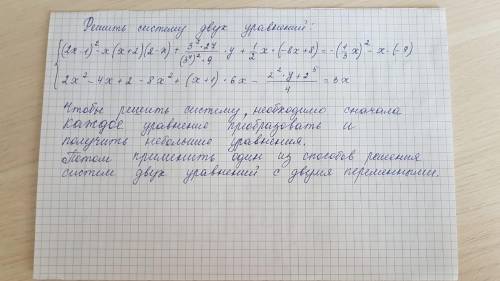 Решить систему двух уравнений:
{(2x-1)² - x(x+2)(2-x) + (3⁷·27)/((3⁴)²·9) · y + 1/2 x·(-8x+8) = -(1/3 x)² - x·(-9)
2x² - 4x + 2 - 8x² + (x+1)·6x - (2²·y+2⁵)/4 = 3x
Чтобы решить систему, необходимо сначала
каждое уравнение преобразовать и
получить небольшие уравнения.
Потом применить один из способов решения
систем двух уравнений с двумя переменными.